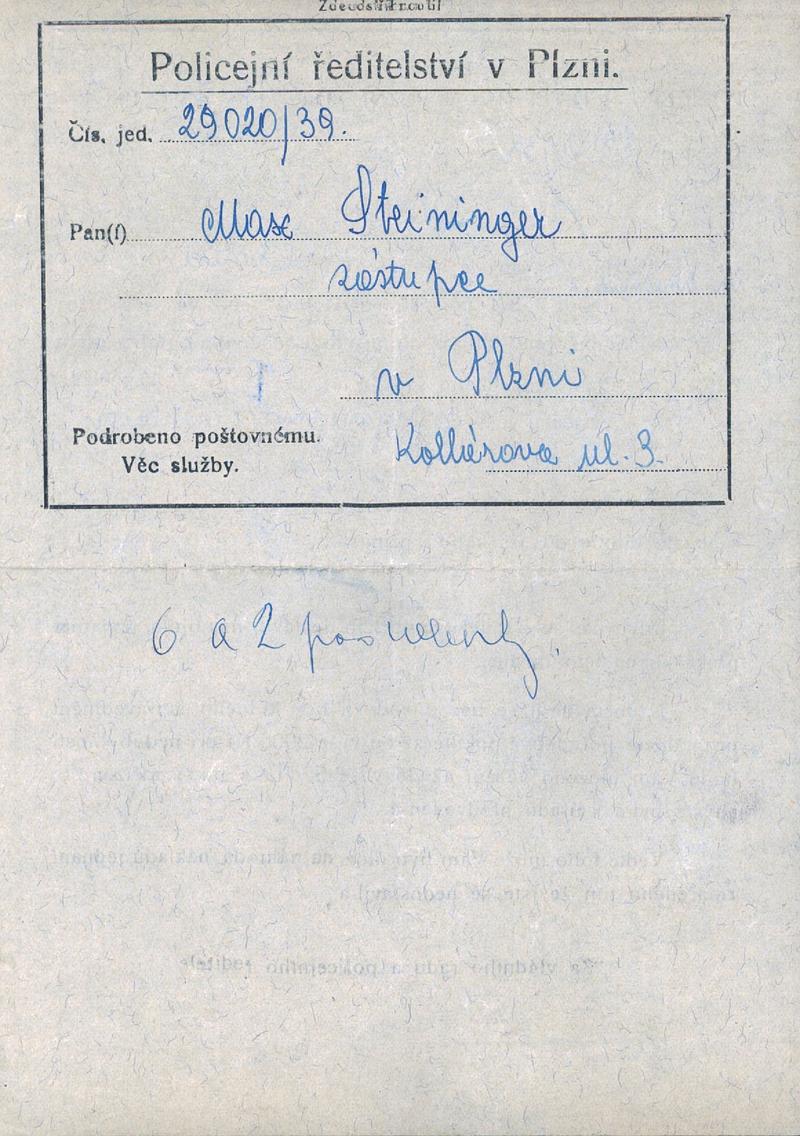 Policejní ředitelství v Plzni.
Čís. jed. 29020/39.
Pan(í) Max Steininger
zástupce
v Plzni
Podrobeno poštovnému. Kollárova ul. 3.
Věc služby.
6 a 2